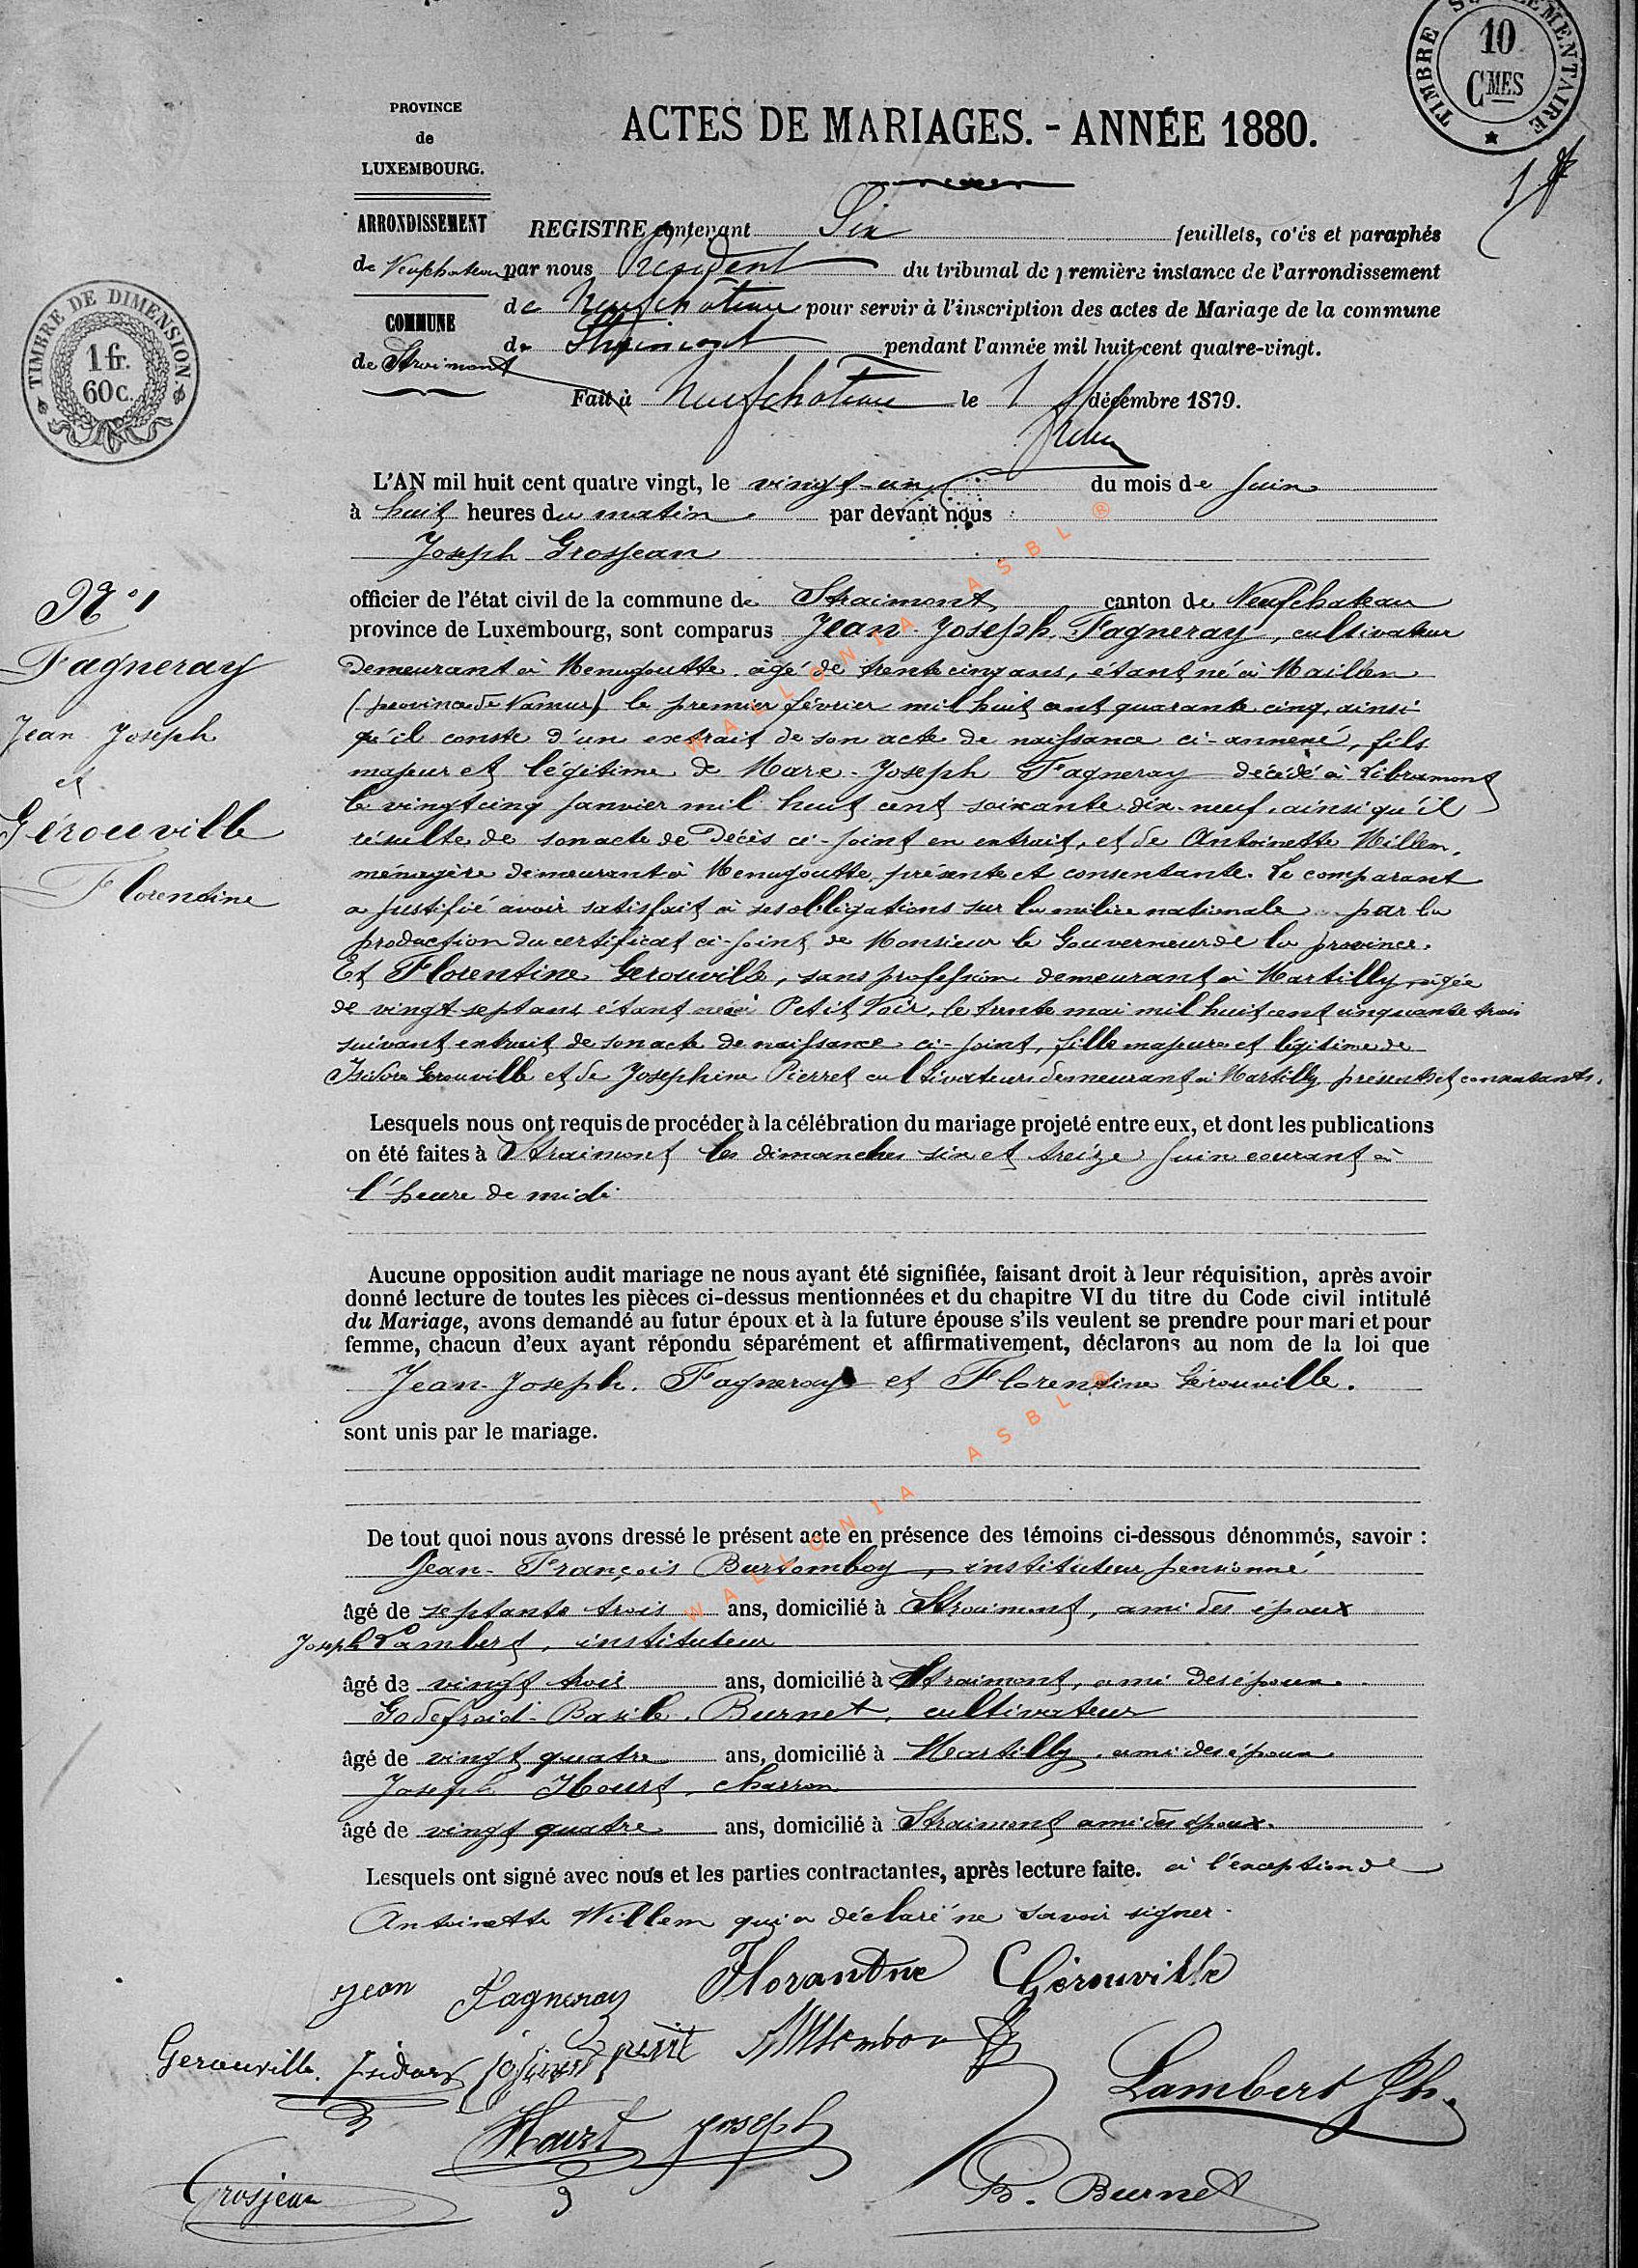 TIMBRE SUPPLÉMENTAIRE
10
CMES
PROVINCE
de
LUXEMBOURG.
ACTES DE MARIAGES. - ANNÉE 1880.
ARRONDISSEMENT
de Neufchateau
COMMUNE
de Straimont
TIMBRE DE DIMENSION.
1 fr.
60 c.
REGISTRE contenant Six feuillets, cotés et paraphés
par nous Président du tribunal de première instance de l'arrondissement
de Neufchâteau pour servir à l'inscription des actes de Mariage de la commune
de Straimont pendant l'année mil huit cent quatre-vingt.
Fait à Neufchateau le 1 décembre 1879.
L'AN mil huit cent quatre vingt, le vingt-un du mois de Juin
à huit heures du matin par devant nous
Joseph Grosjean
officier de l'état civil de la commune de Straimont canton de Neufchateau
province de Luxembourg, sont comparus Jean-Joseph Fagneray, cultivateur
demeurant à Menugoutte, âgé de trente cinq ans, étant né à Maillen
(province de Namur) le premier février mil huit cent quarante cinq, ainsi
qu'il conste d'un extrait de son acte de naissance ci-annexé, fils
majeur et légitime de Marc-Joseph Fagneray décédé à Libramont
le vingt cinq Janvier mil huit cent soixante-dix-neuf, ainsi qu'il
résulte de son acte de décès ci-joint en extrait, et de Antoinette Willem,
ménagère demeurant à Menugoutte, présente et consentante. Le comparant
a justifié avoir satisfait à ses obligations sur la milice nationale par la
production du certificat ci-joint de Monsieur le Gouverneur de la province.
Et Florentine Gerouville, sans profession demeurant à Martilly, âgée
de vingt-sept ans étant née à Petit Voir, le trente mai mil huit cent cinquante trois
suivant extrait de son acte de naissance ci-joint, fille majeure et légitime de
Isidore Gerouville et de Josephine Pierret cultivateurs demeurant à Martilly présents et consentants.
N° 1
Fagneray
Jean-Joseph
et
Gérouville
Florentine
Lesquels nous ont requis de procéder à la célébration du mariage projeté entre eux, et dont les publications
on été faites à Straimont les dimanches six et treize Juin courant à
l'heure de midi
Aucune opposition audit mariage ne nous ayant été signifiée, faisant droit à leur réquisition, après avoir
donné lecture de toutes les pièces ci-dessus mentionnées et du chapitre VI du titre du Code civil intitulé
du Mariage, avons demandé au futur époux et à la future épouse s'ils veulent se prendre pour mari et pour
femme, chacun d'eux ayant répondu séparément et affirmativement, déclarons au nom de la loi que
Jean-Joseph. Fagneray et Florentine Gérouville.
sont unis par le mariage.
De tout quoi nous avons dressé le présent acte en présence des témoins ci-dessous dénommés, savoir :
Jean-François Bursomboy, instituteur pensionné
âgé de septante trois ans, domicilié à Straimont, ami des époux
Joseph Lambert, instituteur
âgé de vingt trois ans, domicilié à Straimont, ami des époux.
Godefroid-Basile. Burnet, cultivateur
âgé de vingt quatre ans, domicilié à Martilly, ami des époux.
Joseph Hourt, charron
âgé de vingt quatre ans, domicilié à Straimont ami des époux.
Lesquels ont signé avec nous et les parties contractantes, après lecture faite. à l'exception de
Antoinette Willem qui a déclaré ne savoir signer.
Jean Fagneray Florantine Gérouville
Gerouville. Isidore
Lambert Jh.
Hourt Joseph
Grosjean
B. Burnet
WALLONIA ASBL ®
WALLONIA ASBL ®